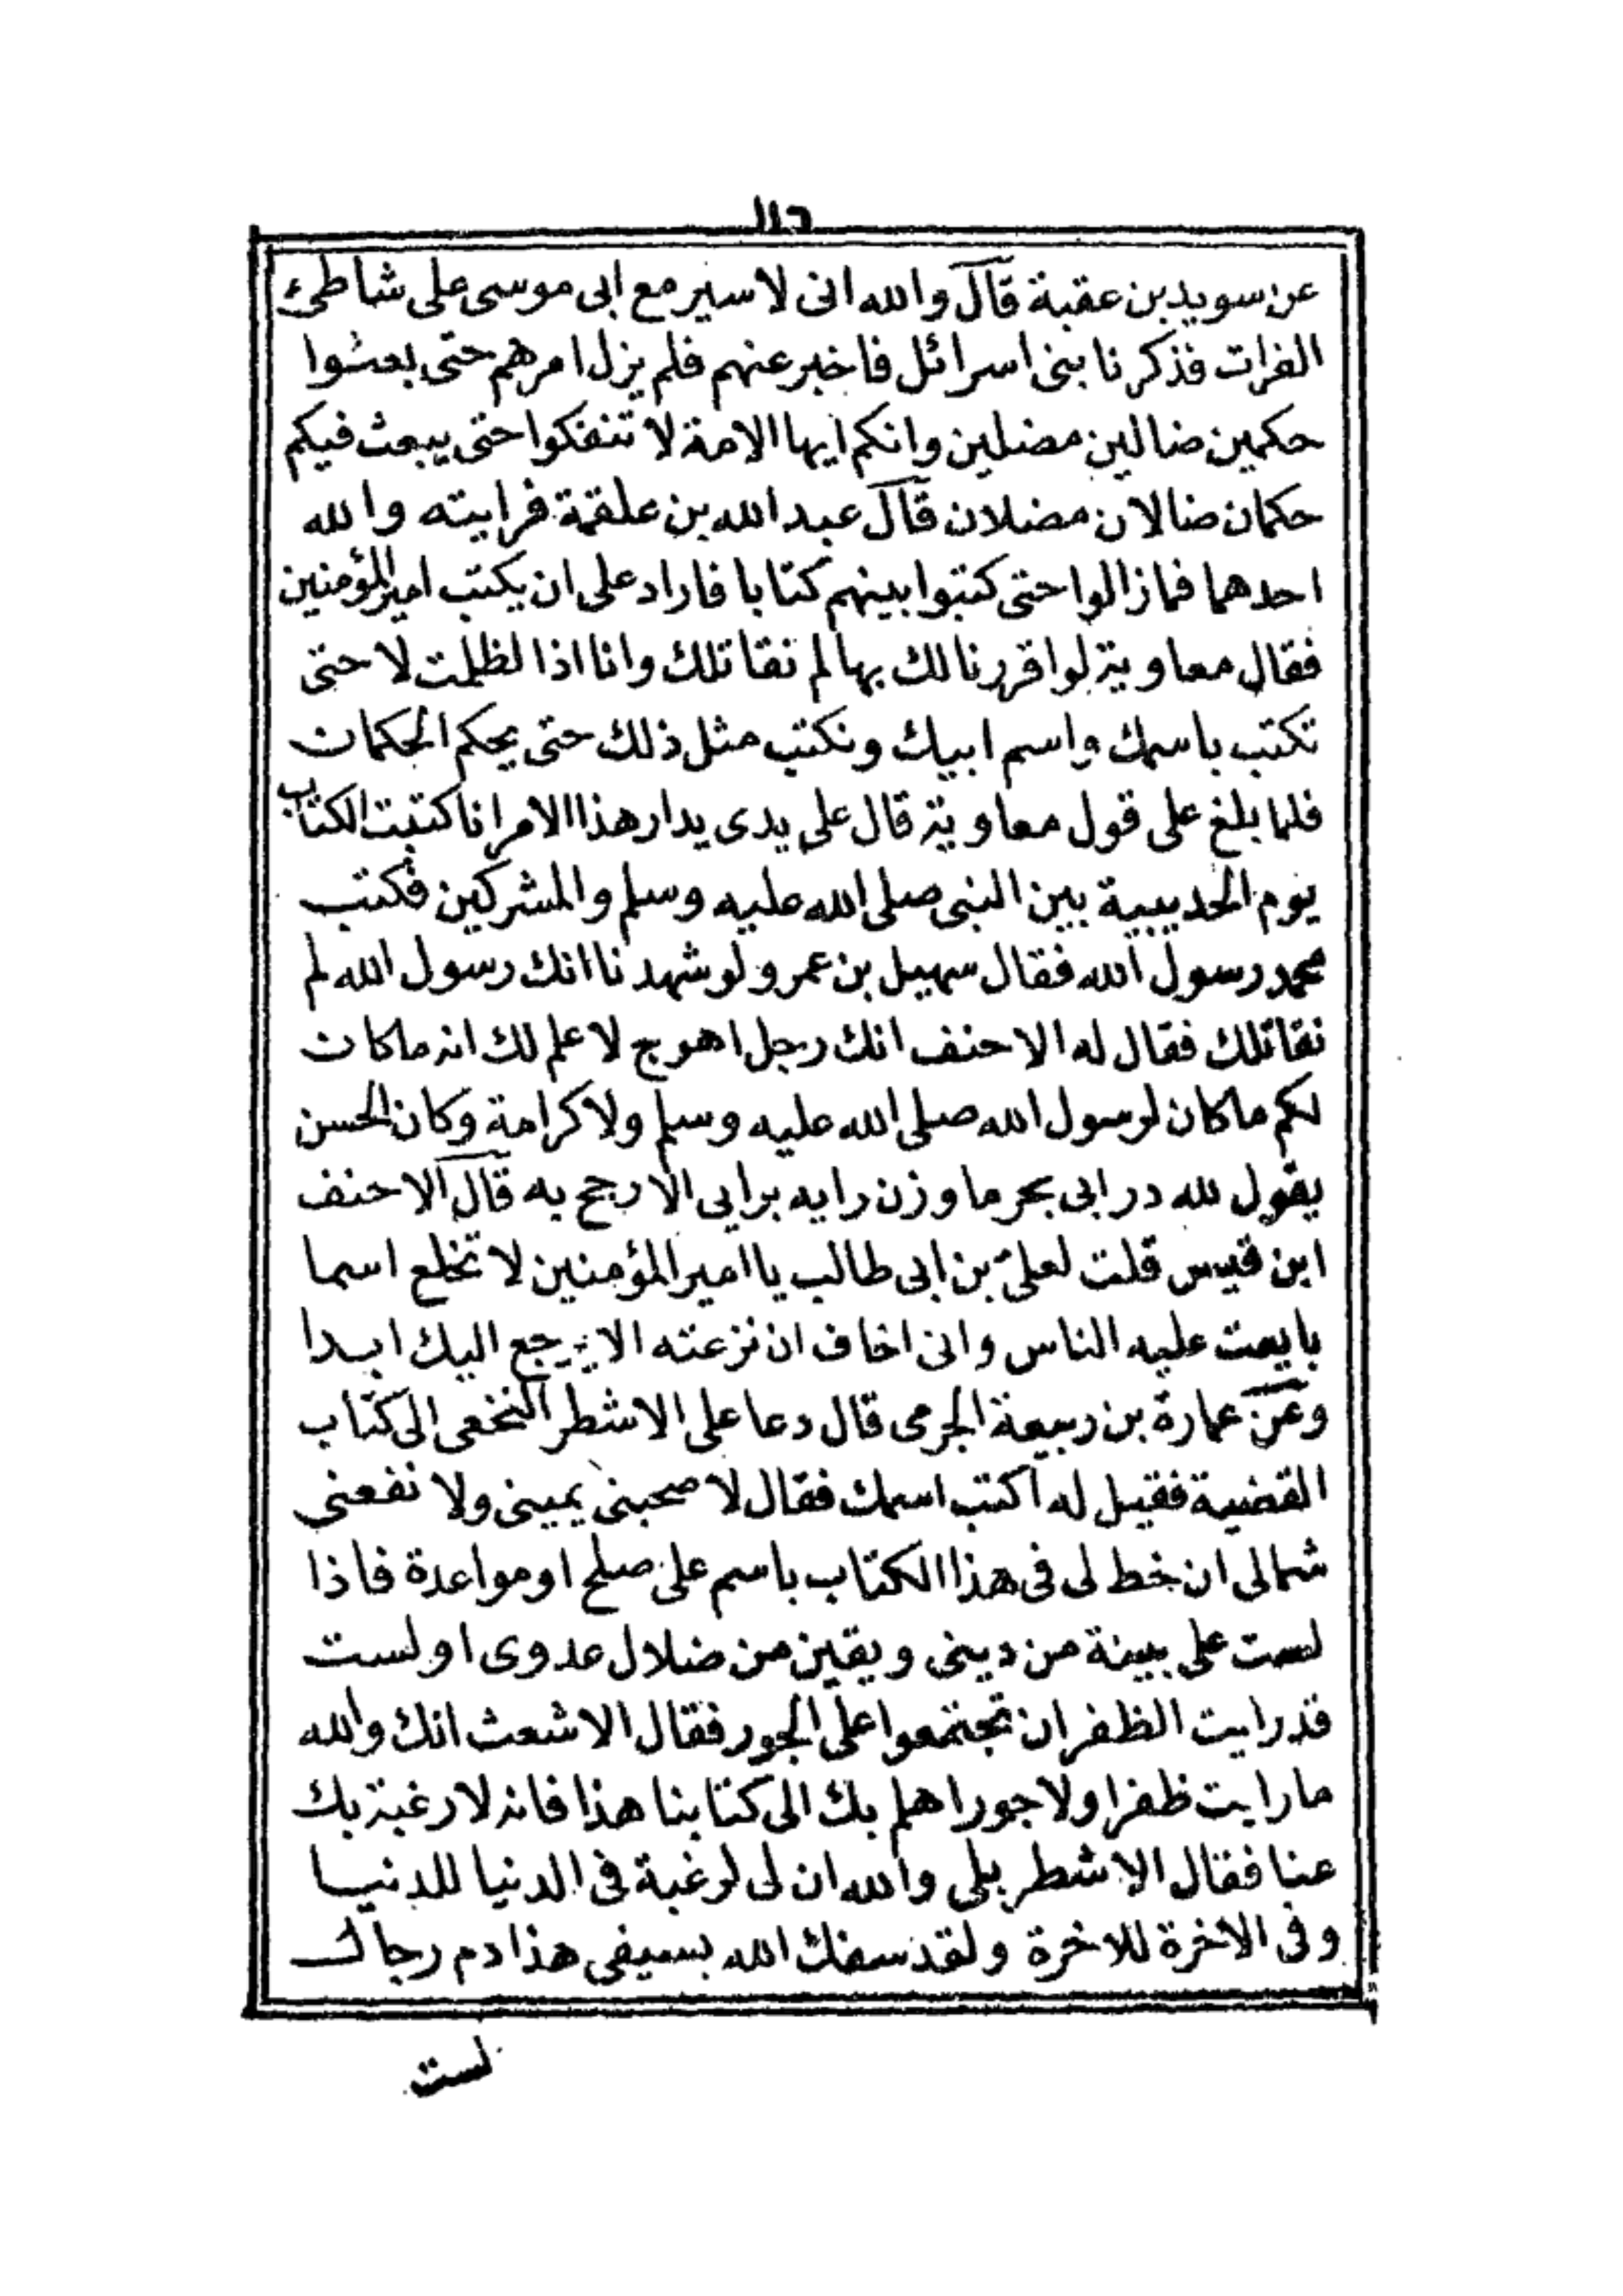 ١١٦
عن سويد بن عقبة قال والله انى لاسير مع ابى موسى على شاطئ
الفرات فذكرنا بنى اسرائل فاخبر عنهم فلم يزل امرهم حتى بعثوا
حكمين ضالين مضلين وانكم ايها الامة لا تنفكوا حتى يبعث فيكم
حكمان ضالان مضلان قال عبد الله بن علقمة فرايته والله
احدهما فما زالوا حتى كتبوا بينهم كتابا فاراد على ان يكتب امير المؤمنين
فقال معاوية لو اقررنا لك بها لم نقاتلك وانا اذا لظلمت لا حتى
تكتب باسمك واسم ابيك ونكتب مثل ذلك حتى يحكم الحكمان
فلما بلغ على قول معاوية قال على يدى يدار هذا الامر انا كتبت الكتاب
يوم الحديبية بين النبى صلى الله عليه وسلم والمشركين فكتب
محمد رسول الله فقال سهيل بن عمرو لو شهدنا انك رسول الله لم
نقاتلك فقال له الاحنف انك رجل اهوج لا علم لك انه ما كان
لكم ما كان لرسول الله صلى الله عليه وسلم ولا كرامة وكان الحسن
يقول لله در ابى بحر ما وزن رايه براى الا رجح به قال الاحنف
ابن قيس قلت لعلى بن ابى طالب يا امير المؤمنين لا تخلع اسما
بايعت عليه الناس وانى اخاف ان نزعته الا يرجع اليك ابدا
وعن عمارة بن ربيعة الجرمى قال دعا على الاشطر النخعى الى كتاب
القضية فقيل له اكتب اسمك فقال لا صحبنى يمينى ولا نفعنى
شمالى ان خط لى فى هذا الكتاب باسم على صلح او مواعدة فاذا
لست على بينة من دينى ويقين من ضلال عدوى اولست
قد رايت الظفر ان تجتمعوا على الجور فقال الاشعث انك والله
ما رايت ظفرا ولا جورا هلم بك الى كتابنا هذا فانه لا رغبة بك
عنا فقال الاشطر بلى والله ان لى لرغبة فى الدنيا للدنيا
وفى الاخرة للاخرة ولقد سفك الله بسيفى هذا دم رجال
لست